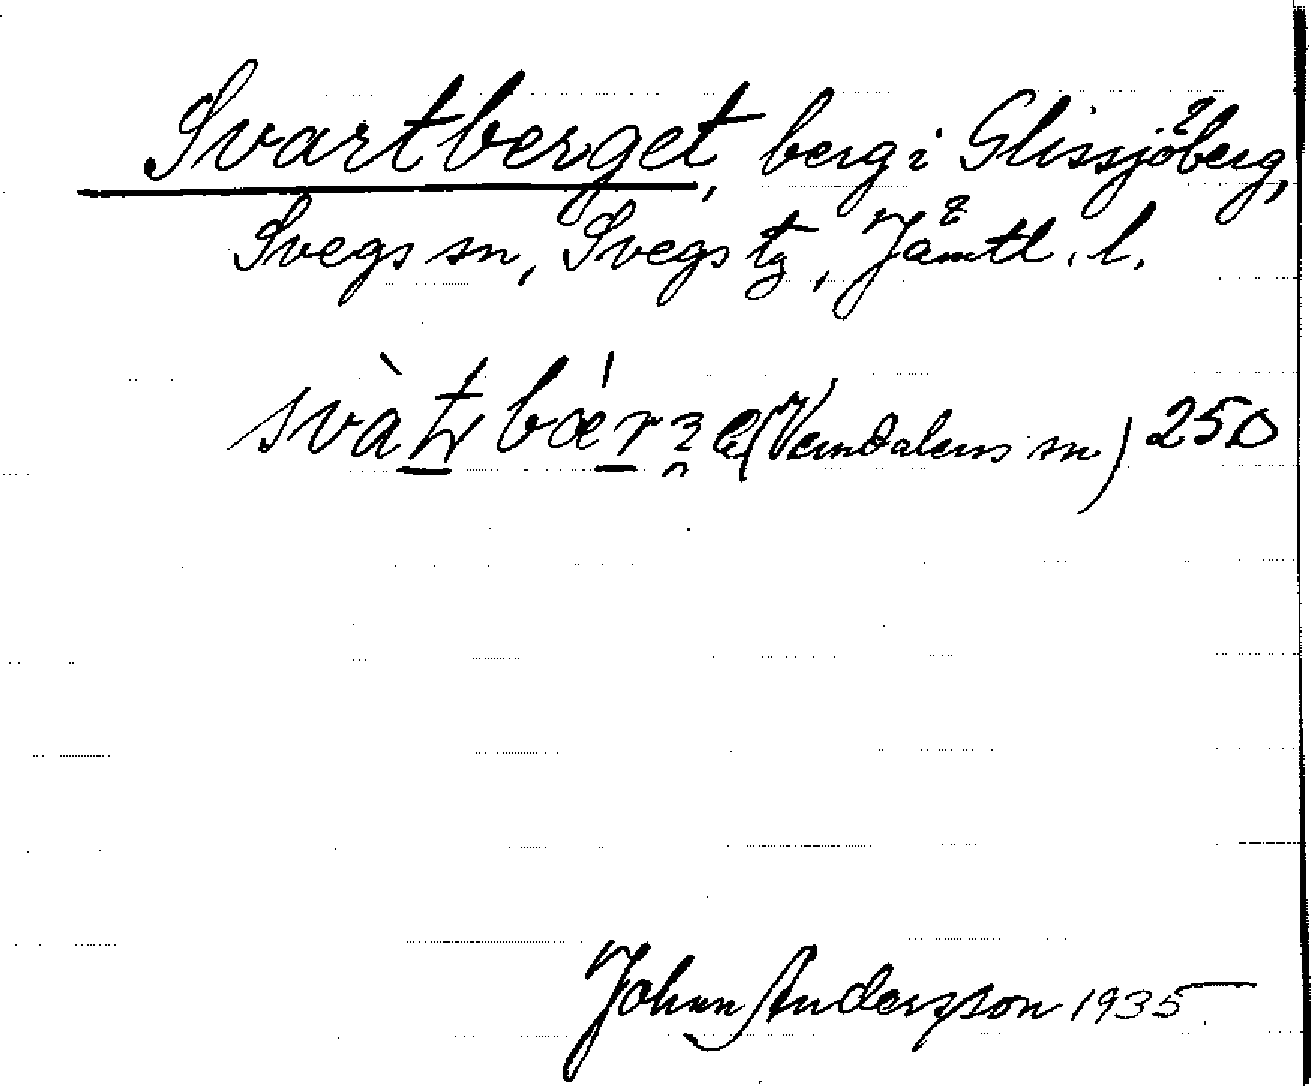 Svartberget, berg i Glissjöberg,
Svegs sn, Svegs tg, Jämtl. l.
(Vemdalens sn) 250
Johan Andersson 1935